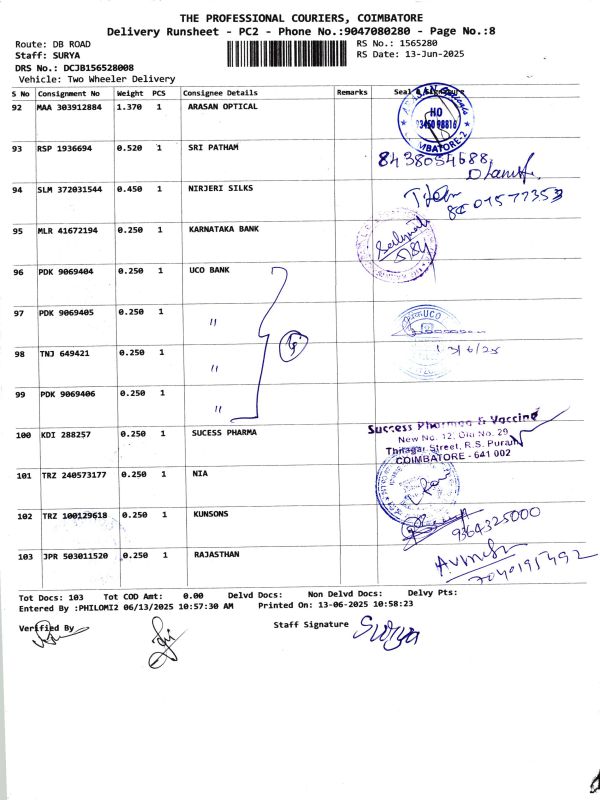 THE PROFESSIONAL COURIERS, COIMBATORE
Delivery Runsheet - PC2 - Phone No.:9047080280 - Page No.:8
Route: DB ROAD
RS No.: 1565280
Staff: SURYA
RS Date: 13-Jun-2025
DRS No.: DCJB156528008
Vehicle: Two Wheeler Delivery
S No Consignment No Weight PCS Consignee Details Remarks Seal & Signature
92 MAA 303912884 1.370 1 ARASAN OPTICAL
HO
93 RSP 1936694 0.520 1 SRI PATHAM
8438054688
94 SLM 372031544 0.450 1 NIRJERI SILKS
95 MLR 41672194 0.250 1 KARNATAKA BANK
96 PDK 9069404 0.250 1 UCO BANK
97 PDK 9069405 0.250 1 "
UCO
98 TNJ 649421 0.250 1 "
13/6/25
99 PDK 9069406 0.250 1 "
100 KDI 288257 0.250 1 SUCESS PHARMA
Success Pharma & Vaccine
New No. 12, Old No. 29
Thiagar Street, R.S. Puram
COIMBATORE - 641 002
101 TRZ 240573177 0.250 1 NIA
102 TRZ 100129618 0.250 1 KUNSONS
9364325000
103 JPR 503011520 0.250 1 RAJASTHAN
7040195492
Tot Docs: 103 Tot COD Amt: 0.00 Delvd Docs: Non Delvd Docs: Delvy Pts:
Entered By :PHILOMI2 06/13/2025 10:57:30 AM Printed On: 13-06-2025 10:58:23
Verified By
Staff Signature Surya